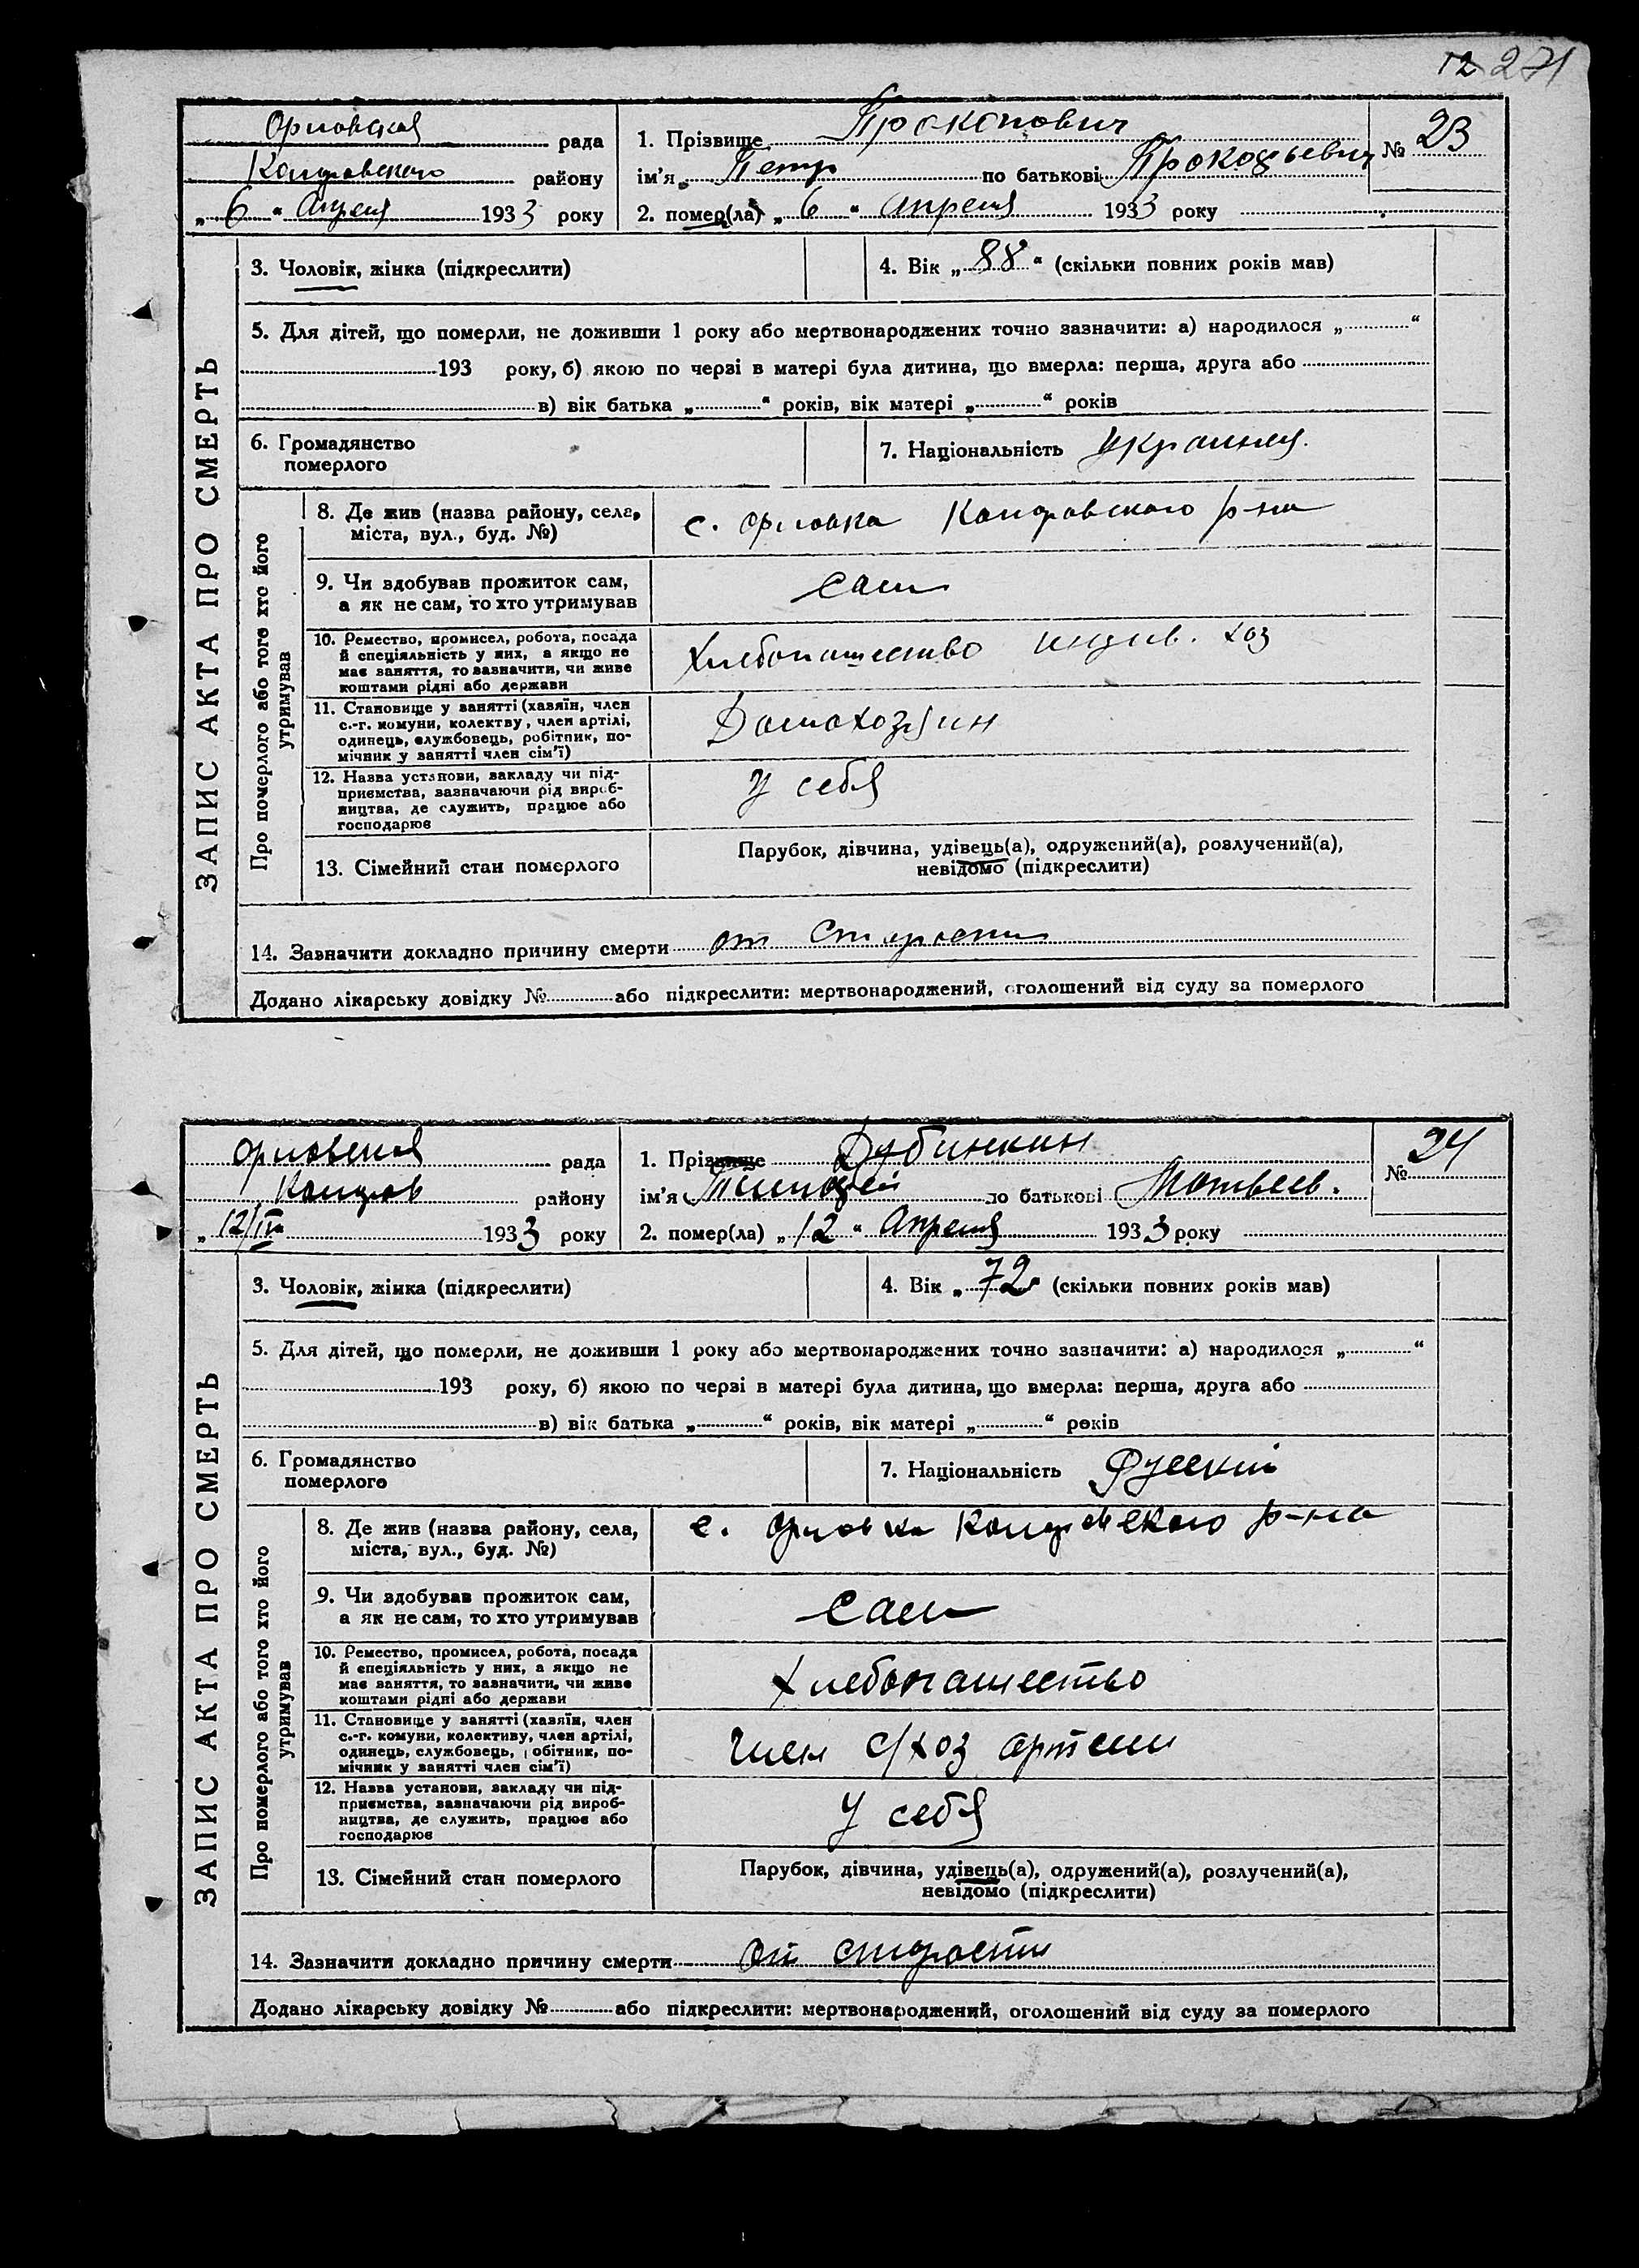 12 271
Орловская рада
1. Прізвище Прокопович № 23
Кондровского району
ім'я Петр по батькові Прокофьевич
„ 6 “ Апреля 1933 року
2. помер(ла) „ 6 “ Апреля 1933 року
3. Чоловік, жінка (підкреслити)
4. Вік „ 88 “ (скільки повних років мав)
5. Для дітей, що померли, не доживши 1 року або мертвонароджених точно зазначити: а) народилося „ “
193 року, б) якою по черзі в матері була дитина, що вмерла: перша, друга або
в) вік батька „ “ років, вік матері „ “ років
6. Громадянство
померлого
7. Національність
ЗАПИС АКТА ПРО СМЕРТЬ
Про померлого або того хто його
утримував
8. Де жив (назва району, села,
міста, вул., буд. №)
с. Орловка Кондровского р-на
9. Чи здобував прожиток сам,
а як не сам, то хто утримував
сам
10. Ремество, промисел, робота, посада
й спеціяльність у них, а якщо не
має заняття, то зазначити, чи живе
коштами рідні або держави
Хлебопашество индив. хоз
11. Становище у занятті (хазяїн, член
с.-г. комуни, колектву, член артілі,
одинець, службовець, робітник, по-
мічник у занятті член сім'ї)
Домохозяин
12. Назва установи, закладу чи під-
приємства, зазначаючи рід вироб-
ництва, де служить, працює або
господарює
У себя
13. Сімейний стан померлого
Парубок, дівчина, удівець(а), одружений(а), розлучений(а),
невідомо (підкреслити)
14. Зазначити докладно причину смерти от старости
Додано лікарську довідку № або підкреслити: мертвонароджений, оголошений від суду за померлого
Орловская рада
1. Прізвище Дубинкин № 24
Кондров району
ім'я Тимофей по батькові Матвеев.
„ 12/IV 1933 року
2. помер(ла) „ 12 “ Апреля 1933 року
3. Чоловік, жінка (підкреслити)
4. Вік „ 72 “ (скільки повних років мав)
5. Для дітей, що померли, не доживши 1 року або мертвонароджених точно зазначити: а) народилося „ “
193 року, б) якою по черзі в матері була дитина, що вмерла: перша, друга або
в) вік батька „ “ років, вік матері „ “ років
6. Громадянство
померлого
7. Національність Русский
ЗАПИС АКТА ПРО СМЕРТЬ
Про померлого або того хто його
утримував
8. Де жив (назва району, села,
міста, вул., буд. №)
с. Орловка Кондровского р-на
9. Чи здобував прожиток сам,
а як не сам, то хто утримував
сам
10. Ремество, промисел, робота, посада
й спеціяльність у них, а якщо не
має заняття, то зазначити, чи живе
коштами рідні або держави
Хлебопашество
11. Становище у занятті (хазяїн, член
с.-г. комуни, колективу, член артілі,
одинець, службовець, робітник, по-
мічник у занятті член сім'ї)
Член с/хоз артели
12. Назва установи, закладу чи під-
приємства, зазначаючи рід вироб-
ництва, де служить, працює або
господарює
У себя
13. Сімейний стан померлого
Парубок, дівчина, удівець(а), одружений(а), розлучений(а),
невідомо (підкреслити)
14. Зазначити докладно причину смерти от старости
Додано лікарську довідку № або підкреслити: мертвонароджений, оголошений від суду за померлого